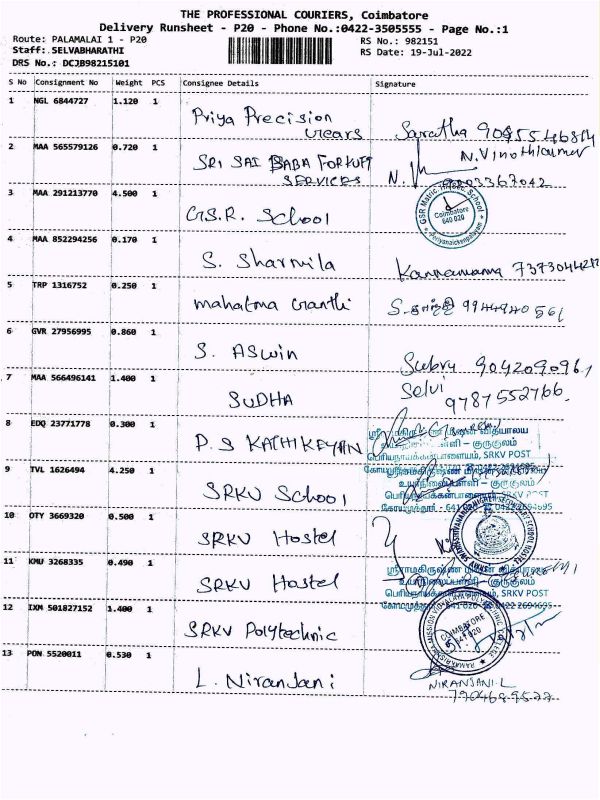 THE PROFESSIONAL COURIERS, Coimbatore
Delivery Runsheet - P20 - Phone No.:0422-3505555 - Page No.:1
Route: PALAMALAI 1 - P20
RS No.: 982151
Staff: SELVABHARATHI
RS Date: 19-Jul-2022
DRS No.: DCJB98215101
S No Consignment No Weight PCS Consignee Details Signature
1 NGL 6844727 1.120 1 Priya Precision Gears Saratha
2 MAA 565579126 0.720 1 SRI SAI BABA FORKLIFT SERVICES N. Vinothkumar
3 MAA 291213770 4.500 1 G.S.R. School
GSR Matric. School
Coimbatore
641 020
Periyanaickenpalayam
4 MAA 852294256 0.170 1 S. Sharmila
5 TRP 1316752 0.250 1 mahatma Granthi
6 GVR 27956995 0.860 1 S. ASwin Subru
7 MAA 566496141 1.400 1 SUDHA Selvi 9787552766.
8 EDQ 23771778 0.300 1 P. S KATHIKEYAN
பெரியநாயக்கன்பாளையம், SRKV POST
9 TVL 1626494 4.250 1 SRKV School
உயர்நிலைப்பள்ளி – குருகுலம்
பெரியநாயக்கன்பாளையம், SRKV POST
10 OTY 3669320 0.500 1 SRKV Hostel
11 KMU 3268335 0.490 1 SRKV Hostel
உயர்நிலைப்பள்ளி – குருகுலம்
பெரியநாயக்கன்பாளையம், SRKV POST
12 IXM 501827152 1.400 1 SRKV Polytechnic
COIMBATORE
641 020
13 PON 5520011 0.530 1 L. Niranjani
NIRANJANI-L